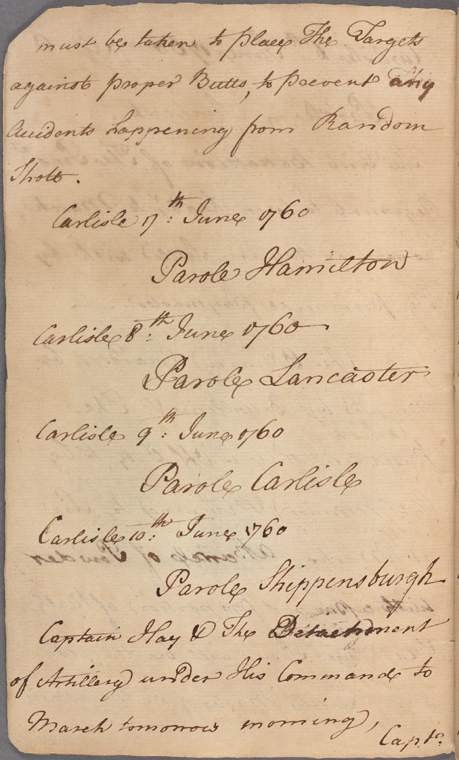 must be taken to place The Targets
against proper Butts, to prevent any
Accidents happening from Random
Shott.
Carlisle 7th: June 1760
Parole Hamilton
Carlisle 8th: June 1760
Parole Lancaster
Carlisle 9th: June 1760
Parole Carlisle
Carlisle 10th: June 1760
Parole Shippensburgh
Captain Hay & The Detachment
of Artillery under His Command to
March tomorrow morning,
Capt: